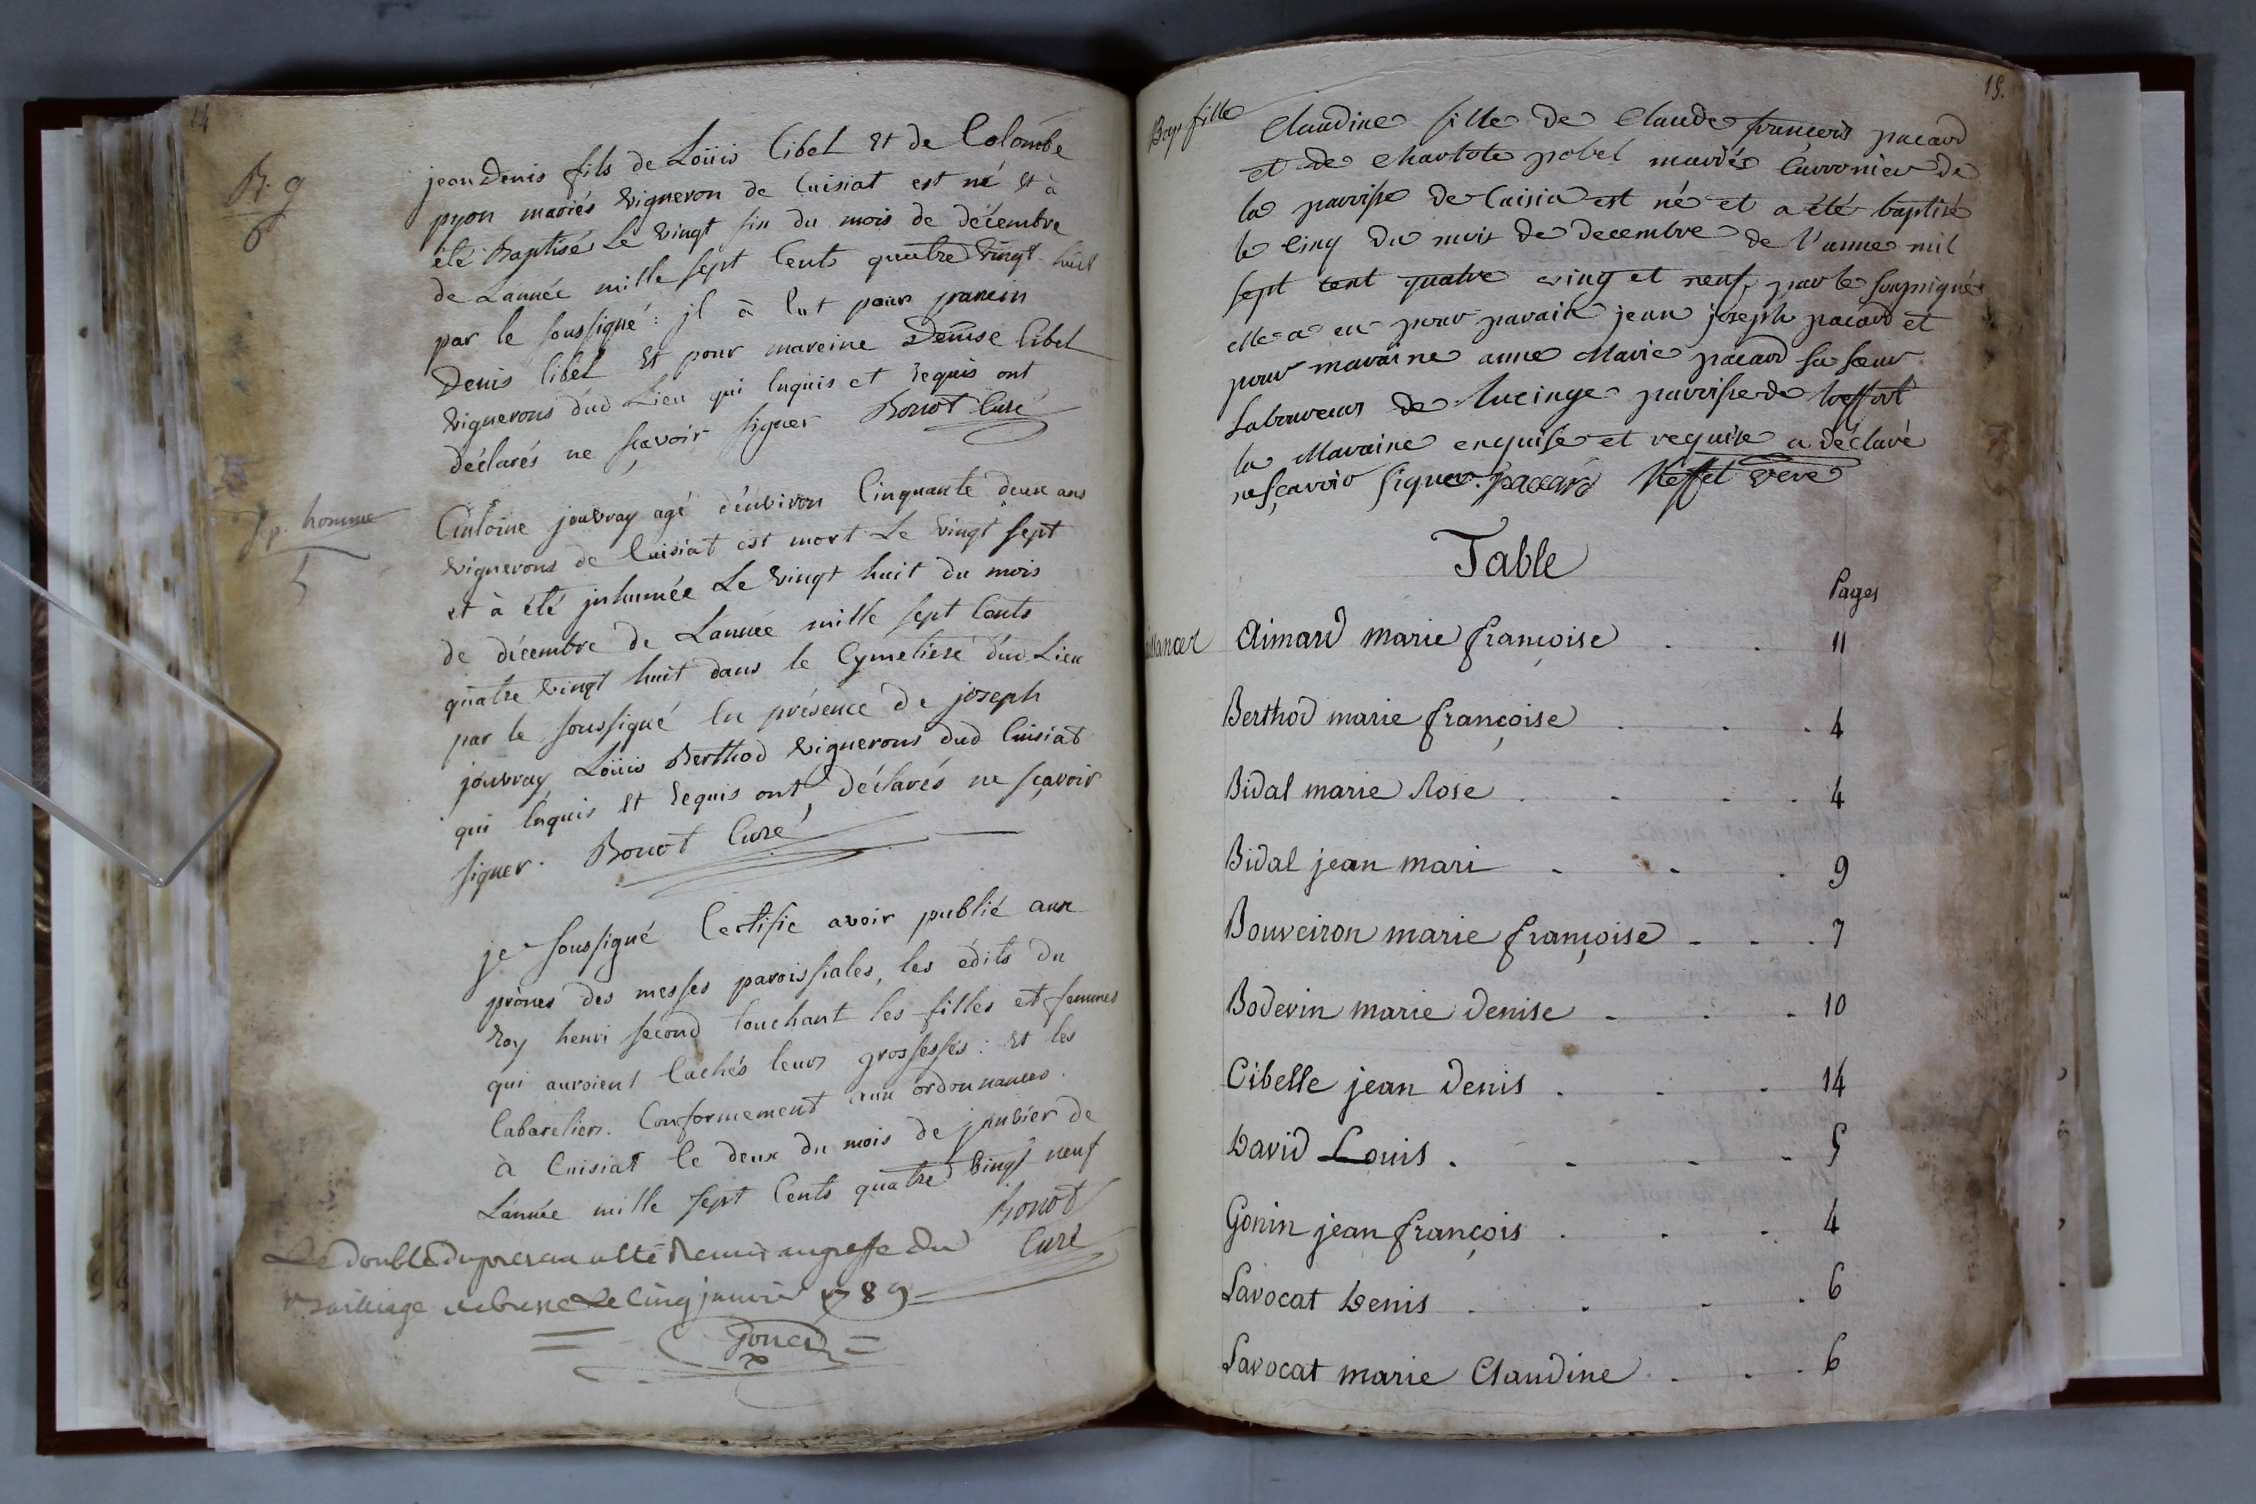 14
B. g
6
jean Denis fils de Loüis Cibel Et de Colombe
pyon mariés vigneron de Cuisiat est né Et à
été Baptisé Le vingt six du mois de décembre
de L'année mille sept Cents quatre vingt huit
par le soussigné : jl à Eut pour parein
Denis Cibel Et pour mareine Denise Cibel
vignerons dud Lieu qui Enquis et requis ont
déclarés ne sçavoir signer Bonot Curé
Sp. homme
5
Antoine jouvray agé d'environ Cinquante deux ans
vignerons de Cuisiat est mort Le vingt sept
et à été jnhumée Le vingt huit du mois
de décembre de L'année mille sept Cents
quatre vingt huit dans le Cymetiere dud Lieu
par le soussigné En présence de joseph
jouvray, Loüis Berthod vignerons dud Cuisiat
qui Enquis Et requis ont déclarés ne sçavoir
signer. Bonot Curé
je soussigné Certifie avoir publié aux
prônes des messes paroissiales, les édits du
Roy henri second touchant les filles et femmes
qui auroient Cachés leurs grossesses : Et les
Cabaretiers. Conformement aux ordonnances.
à Cuisiat le deux du mois de janvier de
L'année mille sept Cents quatre vingt neuf
Bonot
Curé
Le double du present a été Remis au greffe du
Bailliage de bresse Le Cinq janvier 1789
15.
Bap. fille
Claudine fille de Claude françois pacard
et de Charlote pobel mariés de
la parroisse de Cuisia est né et a été baptisé
le Cinq du mois de decembre de l'anne mil
sept cent quatre ving et neuf par le soussigné
elle a eu pour parain jean joseph pacard et
pour maraine anne Marie pacard sa sœur
Laboureurs de Lucinge parroisse de treffort
la Maraine enquise et requise a déclaré
ne sçavoir signer. paccard
Table
Pages
Naissances Aimard marie françoise . . 11
Berthod marie françoise . . . 4
Bidal marie Rose . . . . 4
Bidal jean mari . . . 9
Bouveiron marie françoise . . . 7
Bodevin marie Denise . . . 10
Cibelle jean Denis . . . 14
David Louis . . . . 5
Gonin jean françois . . . 4
Lavocat Denis . . . . 6
Lavocat marie Claudine . . . 6